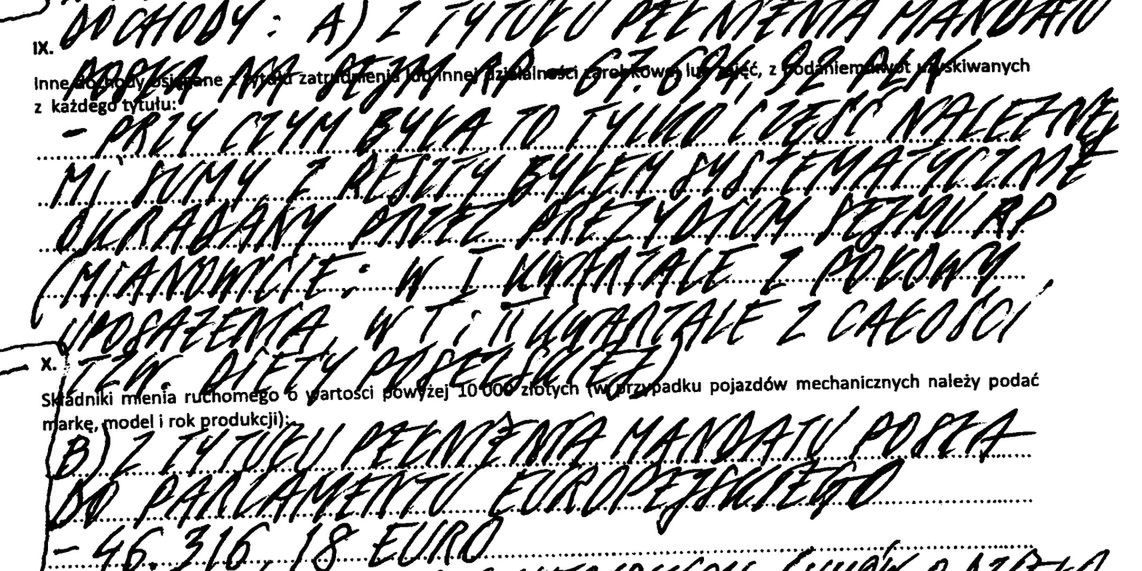 DOCHODY: A) Z TYTUŁU PEŁNIENIA MANDATU
IX.
POSŁA NA SEJM RP - 67.691,92 PLN
Inne dochody osiągane z tytułu zatrudnienia lub innej działalności zarobkowej lub zajęć, z podaniem kwot uzyskiwanych
z każdego tytułu:
- PRZY CZYM BYŁA TO TYLKO CZĘŚĆ NALEŻNEJ
MI SUMY Z RESZTY BYŁEM SYSTEMATYCZNIE
OKRADANY PRZEZ PREZYDIUM SEJMU RP
(MIANOWICIE: W I KWARTALE Z POŁOWY
UPOSAŻENIA, W I i II KWARTALE Z CAŁOŚCI
X.
TZW. DIETY POSELSKIEJ)
Składniki mienia ruchomego o wartości powyżej 10 000 złotych (w przypadku pojazdów mechanicznych należy podać
markę, model i rok produkcji):
B) Z TYTUŁU PEŁNIENIA MANDATU POSŁA
DO PARLAMENTU EUROPEJSKIEGO
- 46.316,18 EURO